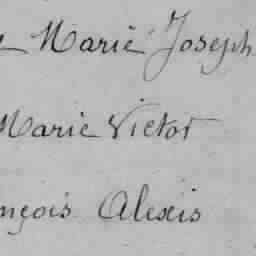 e Marie Joseph
Marie Victor
nçois Alexis